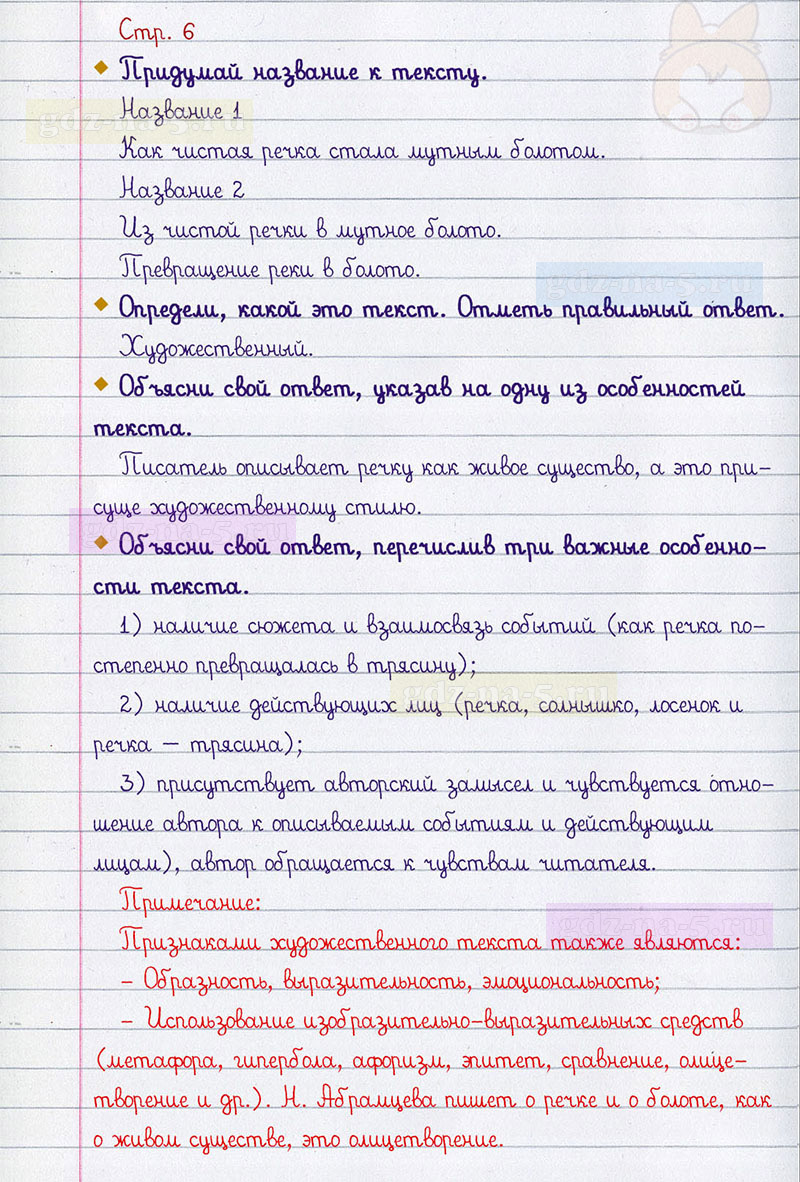 Стр. 6
Придумай название к тексту.
Название 1
gdz-na-5.ru
Как чистая речка стала мутным болотом.
Название 2
Из чистой речки в мутное болото.
Превращение реки в болото.
gdz-na-5.ru
Определи, какой это текст. Отметь правильный ответ.
Художественный.
Объясни свой ответ, указав на одну из особенностей
текста.
Писатель описывает речку как живое существо, а это при-
суще художественному стилю.
gdz-na-5.ru
Объясни свой ответ, перечислив три важные особенно-
сти текста.
1) наличие сюжета и взаимосвязь событий (как речка по-
степенно превращалась в трясину);
gdz-na-5.ru
2) наличие действующих лиц (речка, солнышко, лосенок и
речка – трясина);
3) присутствует авторский замысел и чувствуется отно-
шение автора к описываемым событиям и действующим
лицам), автор обращается к чувствам читателя.
Примечание:
gdz-na-5.ru
Признаками художественного текста также являются:
– Образность, выразительность, эмоциональность;
– Использование изобразительно-выразительных средств
(метафора, гипербола, афоризм, эпитет, сравнение, олице-
творение и др.). Н. Абрамцева пишет о речке и о болоте, как
о живом существе, это олицетворение.